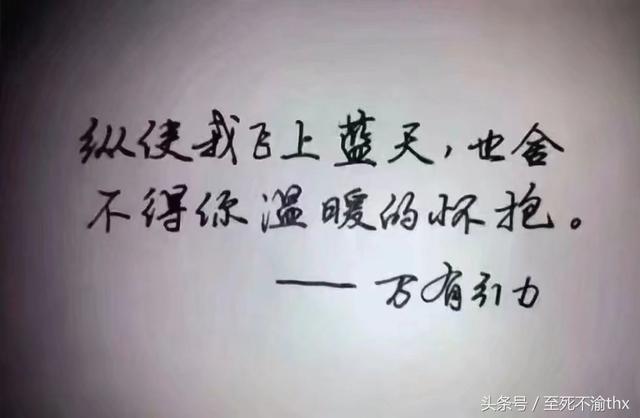 纵使我飞上蓝天，也舍
不得你温暖的怀抱。
——万有引力
头条号／至死不渝thx